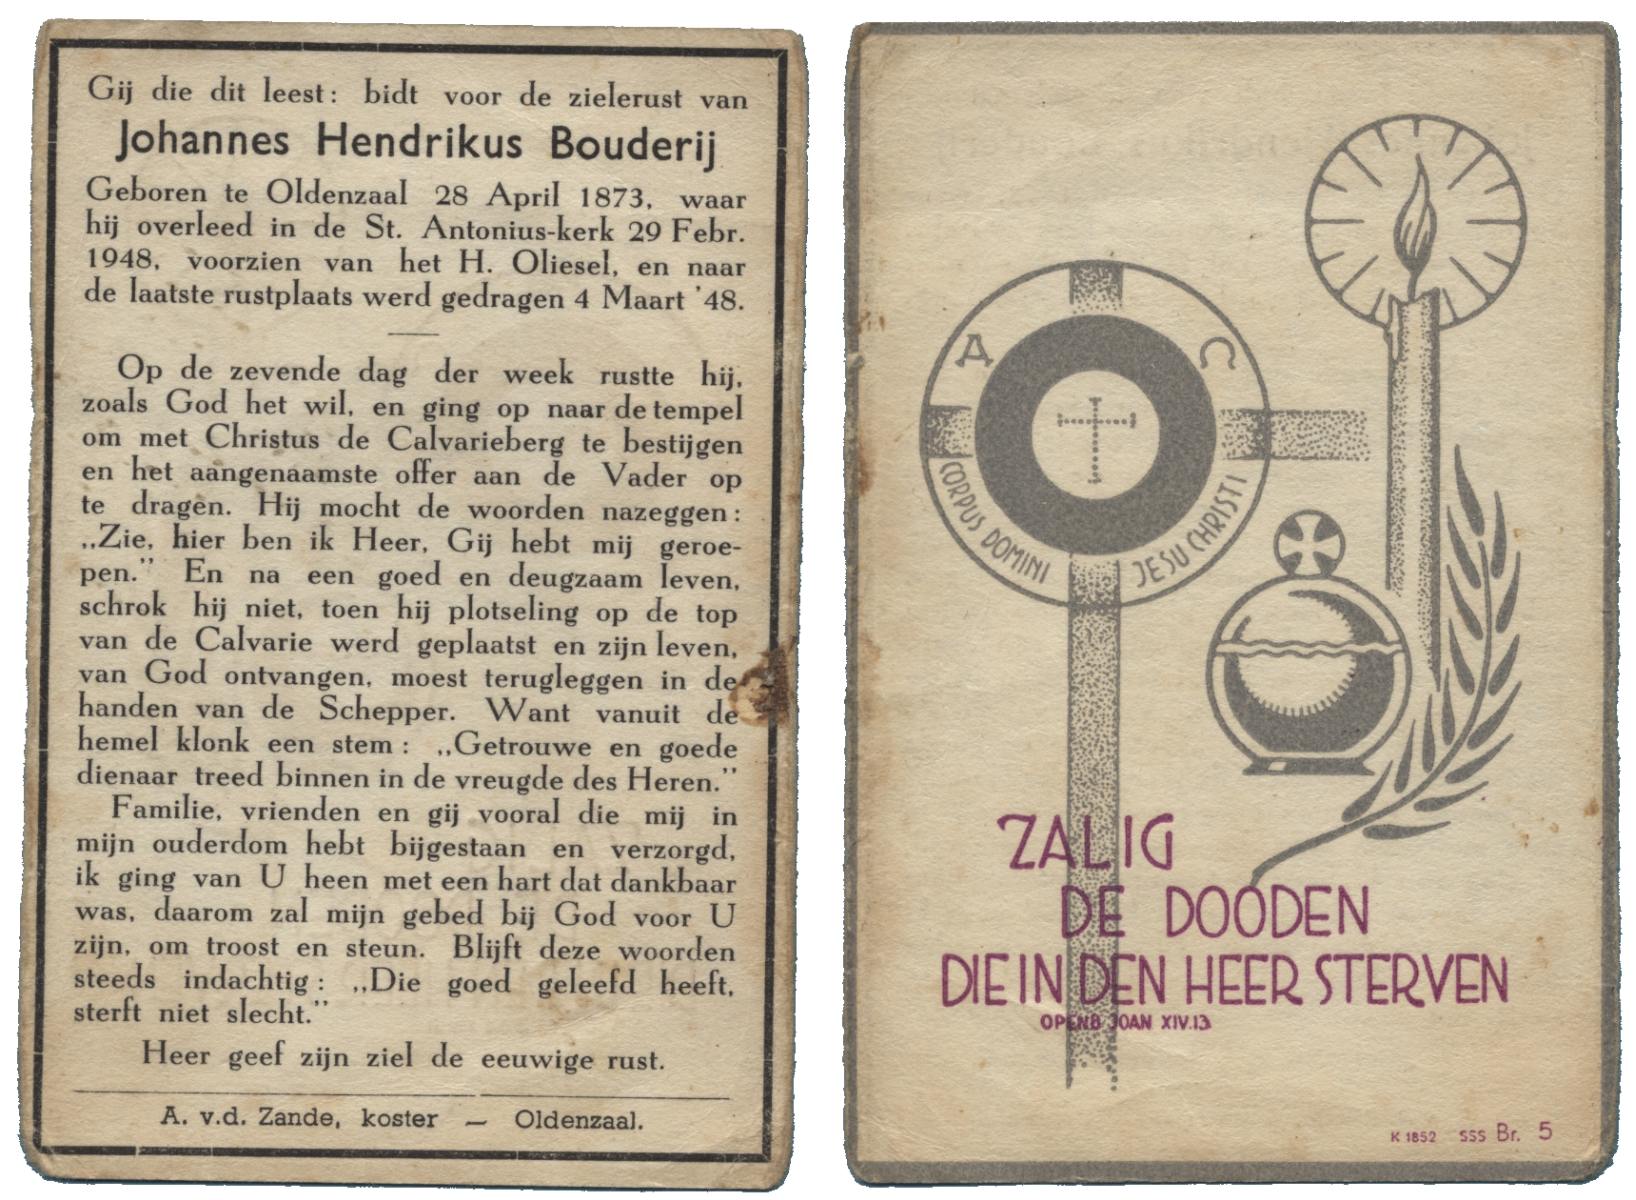 Gij die dit leest: bidt voor de zielerust van
Johannes Hendrikus Bouderij
Geboren te Oldenzaal 28 April 1873, waar
hij overleed in de St. Antonius-kerk 29 Febr.
1948, voorzien van het H. Oliesel, en naar
de laatste rustplaats werd gedragen 4 Maart '48.
Op de zevende dag der week rustte hij,
zoals God het wil, en ging op naar de tempel
om met Christus de Calvarieberg te bestijgen
en het aangenaamste offer aan de Vader op
te dragen. Hij mocht de woorden nazeggen:
„Zie, hier ben ik Heer, Gij hebt mij geroe-
pen.” En na een goed en deugzaam leven,
schrok hij niet, toen hij plotseling op de top
van de Calvarie werd geplaatst en zijn leven,
van God ontvangen, moest terugleggen in de
handen van de Schepper. Want vanuit de
hemel klonk een stem: „Getrouwe en goede
dienaar treed binnen in de vreugde des Heren.”
Familie, vrienden en gij vooral die mij in
mijn ouderdom hebt bijgestaan en verzorgd,
ik ging van U heen met een hart dat dankbaar
was, daarom zal mijn gebed bij God voor U
zijn, om troost en steun. Blijft deze woorden
steeds indachtig: „Die goed geleefd heeft,
sterft niet slecht.”
Heer geef zijn ziel de eeuwige rust.
A. v.d. Zande, koster — Oldenzaal.
A Ω
CORPUS DOMINI JESU CHRISTI
ZALIG
DE DOODEN
DIE IN DEN HEER STERVEN
OPENB JOAN XIV.13
K 1852 SSS Br. 5